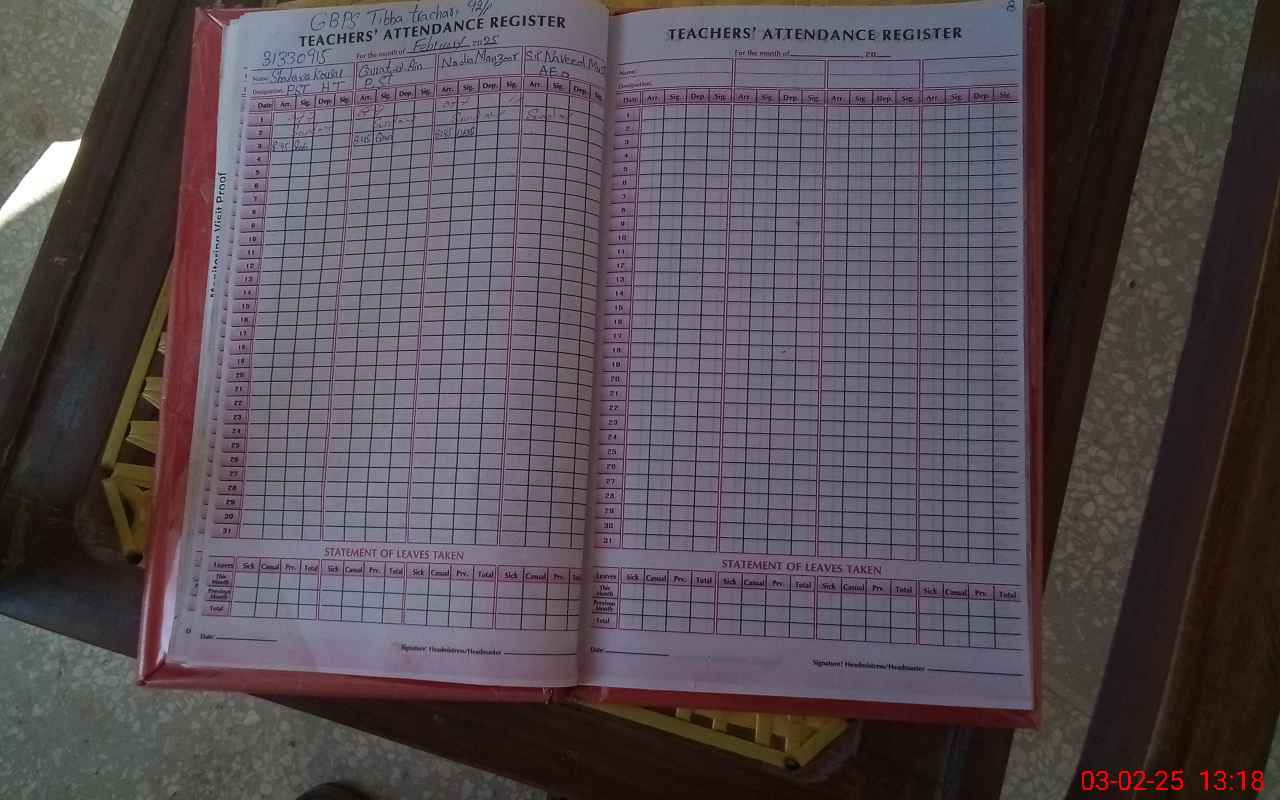 GBPS Tibba trachar, 42/1
TEACHERS' ATTENDANCE REGISTER
31330915
For the month of February 2025
Name: Shazia Kausar Nadia Manzoor Sir Naveed
Designation: PST HT PST AEO
Date Arr. Sig. Dep. Sig. Arr. Sig. Dep. Sig. Arr. Sig. Dep. Sig. Arr. Sig. Dep. Sig.
1
2 Sunday Sunday Sunday Sunday
3 8:45 8:45
4
5
6
7
8
9
10
11
12
13
14
15
16
17
18
19
20
21
22
23
24
25
26
27
28
29
30
31
STATEMENT OF LEAVES TAKEN
Leaves Sick Casual Prv. Total Sick Casual Prv. Total Sick Casual Prv. Total Sick Casual Prv.
This Month
Previous Month
Total
Date:
Signature: Headmistress/Headmaster
Monitoring Visit Proof
8
TEACHERS' ATTENDANCE REGISTER
For the month of 20
Name:
Designation:
Date Arr. Sig. Dep. Sig. Arr. Sig. Dep. Sig. Arr. Sig. Dep. Sig. Arr. Sig. Dep. Sig.
1
2
3
4
5
6
7
8
9
10
11
12
13
14
15
16
17
18
19
20
21
22
23
24
25
26
27
28
29
30
31
STATEMENT OF LEAVES TAKEN
Leaves Sick Casual Prv. Total Sick Casual Prv. Total Sick Casual Prv. Total Sick Casual Prv. Total
This Month
Previous Month
Total
Date:
Signature: Headmistress/Headmaster
03-02-25 13:18